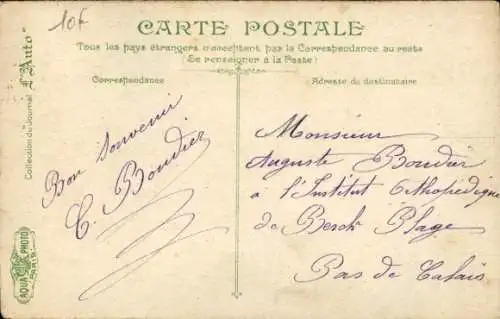 10F
CARTE POSTALE
Tous les pays étrangers n'acceptent pas la Correspondance au recto
(Se renseigner à la Poste)
Correspondance
Adresse du destinataire
Collection du Journal L'Auto
AQUA PHOTO
PARIS
Bon souvenir
C. Boudier
Monsieur
Auguste Boudier
à l'Institut Orthopédique
de Berck Plage
Pas de Calais